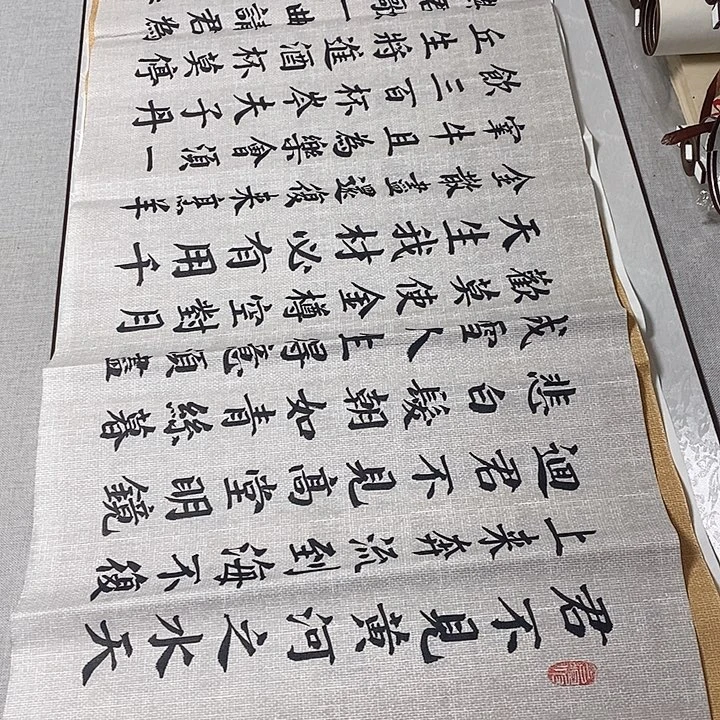 君不見黃河之水天
上來奔流到海不復
迴君不見高堂明鏡
悲白髮朝如青絲暮
成雪人生得意須盡
歡莫使金樽空對月
天生我材必有用千
金散盡還復來烹羊
宰牛且為樂會須一
飲三百杯岑夫子丹
丘生將進酒杯莫停
君歌一曲請君為